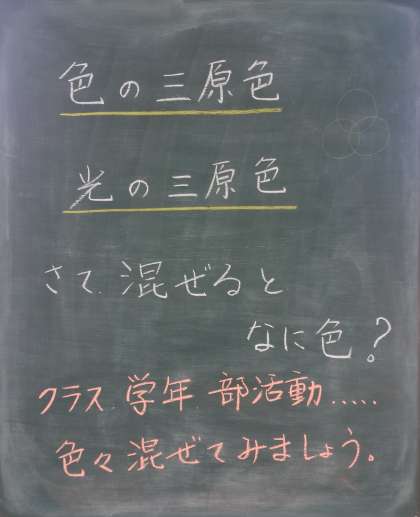 色の三原色
光の三原色
さて、混ぜると
なに色?
クラス、学年、部活動.....
色々混ぜてみましょう。